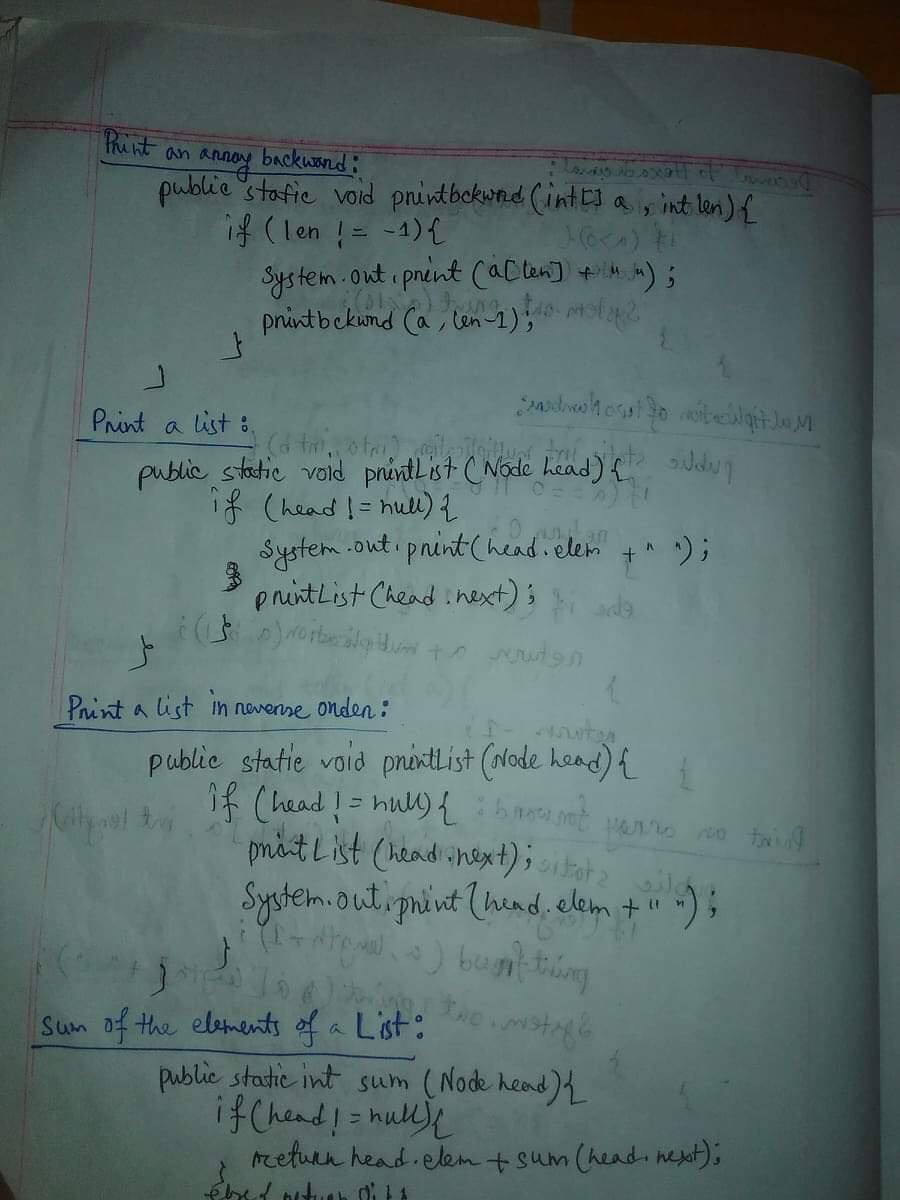 Print an array backward:
public static void printbckwrd (int[] a, int len) {
if (len != -1) {
System.out.print (a[len] + " ");
printbckwrd (a, len-1);
}
}
Print a list:
public static void printList (Node head) {
if (head != null) {
System.out.print(head.elem + " ");
printList (head.next);
}
}
Print a list in reverse order:
public static void printList (Node head) {
if (head != null) {
printList (head.next);
System.out.print(head.elem + " ");
}
}
Sum of the elements of a List:
public static int sum (Node head) {
if (head != null) {
return head.elem + sum (head.next);
}
else {return 0;}